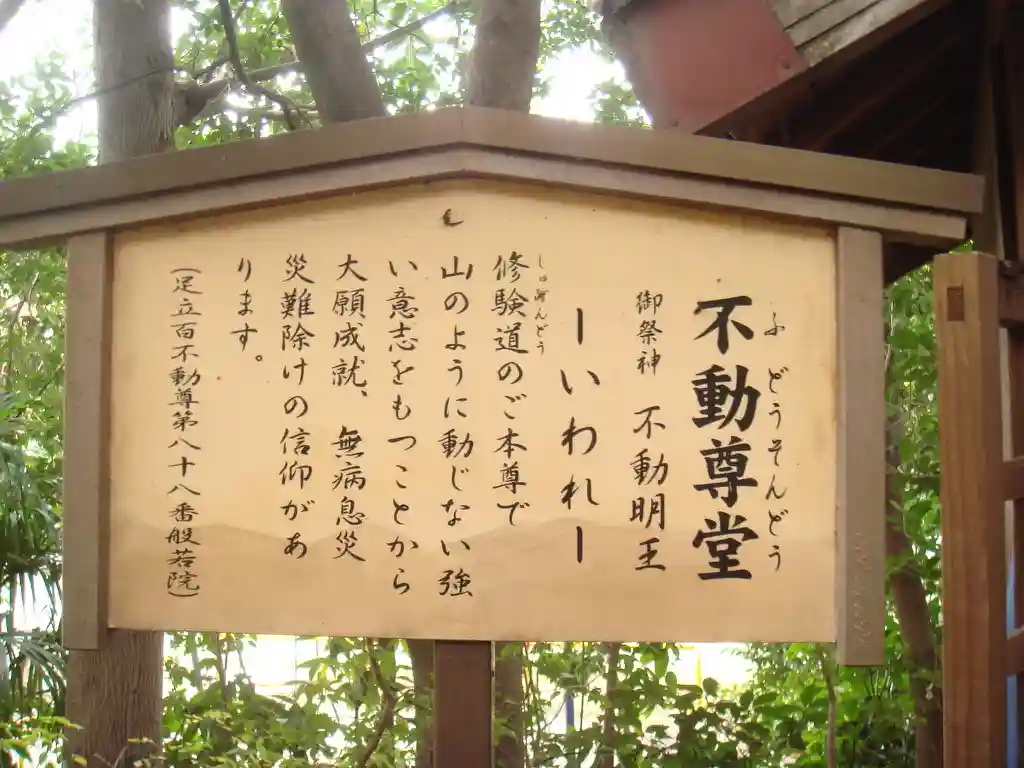 ふどうそんどう
不動尊堂
御祭神 不動明王
ーいわれー
しゅげんどう
修験道のご本尊で
山のように動じない強
い意志をもつことから
大願成就、無病息災
災難除けの信仰があ
ります。
(足立百不動尊第八十八番般若院)